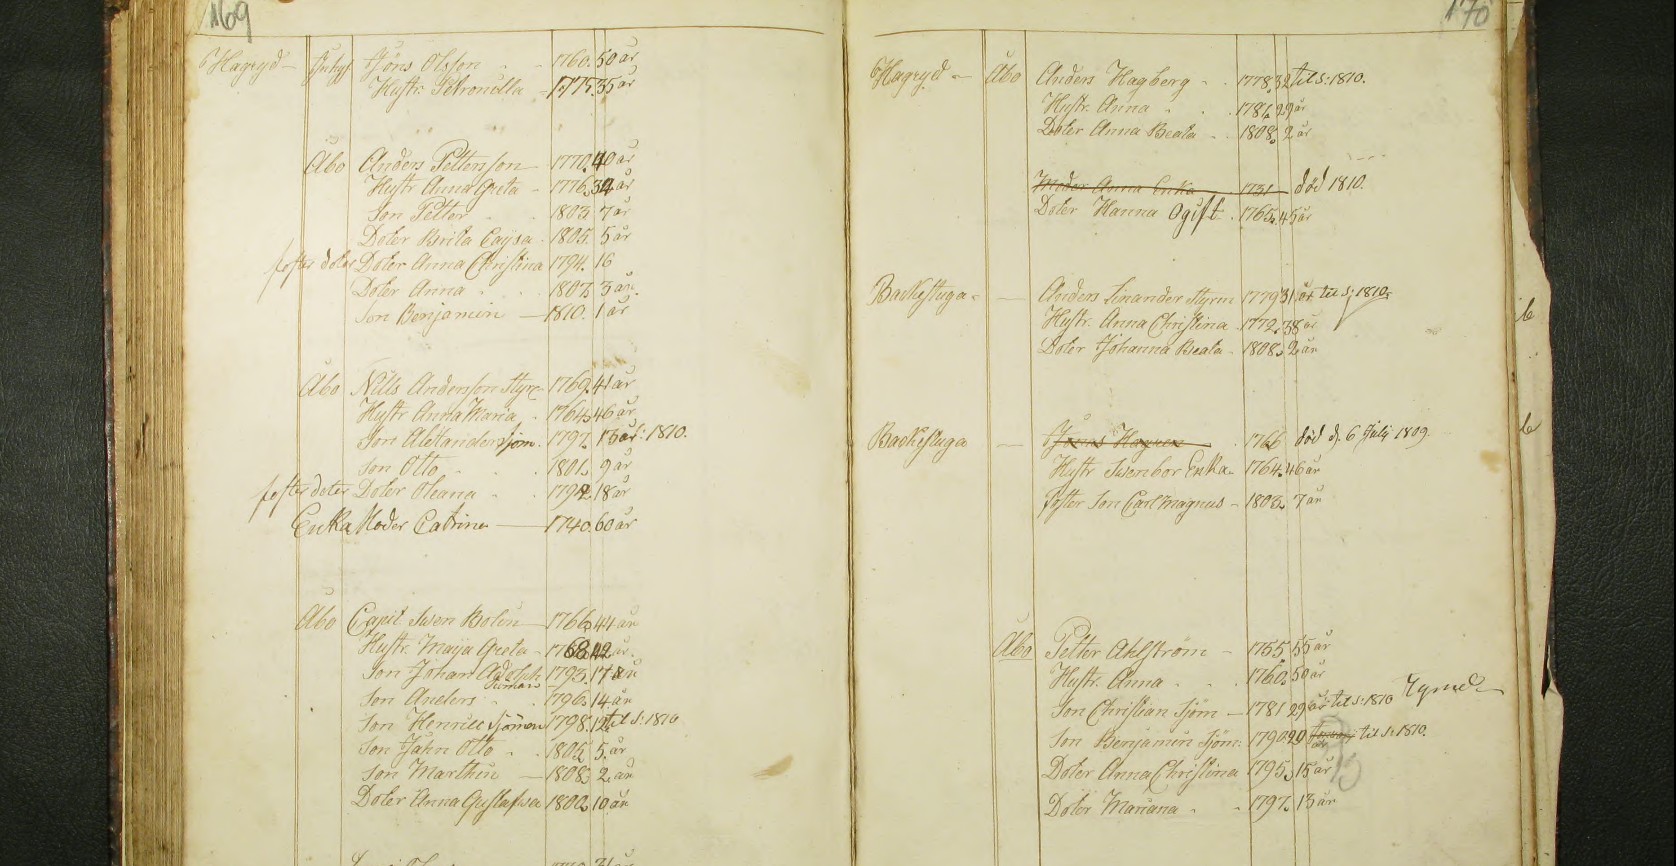 169
6 Hagryd Jöns Olsson 1760. 50 år
Hustr. Petronilla 1775. 35 år
Åbo Anders Pettersson 1770. 40 år
Hustr Anna Greta 1776. 34 år
Son Petter 1803 7 år
Doter Brita Caysa 1805. 5 år
foster doter Doter Anna Christina 1794. 16
Doter Anna 1807. 3 år
Son Benjamin 1810. 1 år
Åbo Nills Andersson Styr 1769. 41 år
Hustr Anna Maria 1764. 46 år
Son Alexander sjöm. 1797. 13 år s: 1810.
Son Otto 1801. 9 år
foster doter Doter Oleana 1792. 18 år
Enka Moder Catrina 1740. 60 år
Åbo Capit Swen Bolin 1766. 44 år
Hustr. Maija Greta 1768 42 år.
Son Johan Adolph 1793. 17 år
Son Anders 1796. 14 år
Son Henric sjöman 1798. 12 til s: 1810
Son John Otto 1805. 5. år
Son Marthin 1808. 2. år
Doter Anna Gustafwa 1800. 10 år
31 år
170
6 Hagryd Åbo Anders Hagberg 1778. 32 til s: 1810.
Hustr. Anna 1781. 29 år
Doter Anna Beata 1808. 2 år
Moder Anna Enka 1731 död 1810.
Doter Hanna Ogift 1765. 45 år
Backstuga Anders Linander Styrm 1779 31 år til s: 1810.
Hustr. Anna Christina 1772. 38 år
Doter Johanna Beata 1808. 2 år
Backstuga Jonas Hagren 1766 död d. 6 July 1809.
Hustr Swenbor Enka 1764. 46 år
foster Son Carl Magnus 1803. 7 år
Åbo Petter Ahlström 1755 55 år
Hustr. Anna 1760. 50 år
Son Christian Sjöm 1781 29 år til s: 1810 Rymd
Son Benjamin Sjöm: 1790. 20 til s: 1810.
Doter Anna Christina 1795. 15 år
Doter Mariana 1797. 13 år